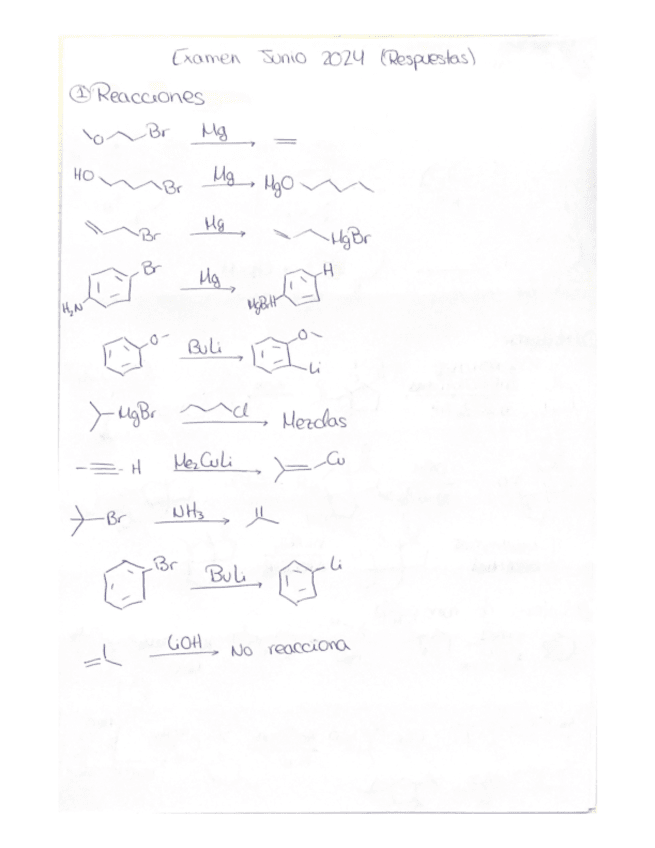 Examen Junio 2024 (Respuestas)
① Reacciones
O Br Mg
HO Br Mg MgO
Br Mg MgBr
Br H2N Mg H MgBrH
O BuLi O Li
MgBr Cl Mezclas
H Me2CuLi Cu
Br NH3
Br BuLi Li
LiOH No reacciona